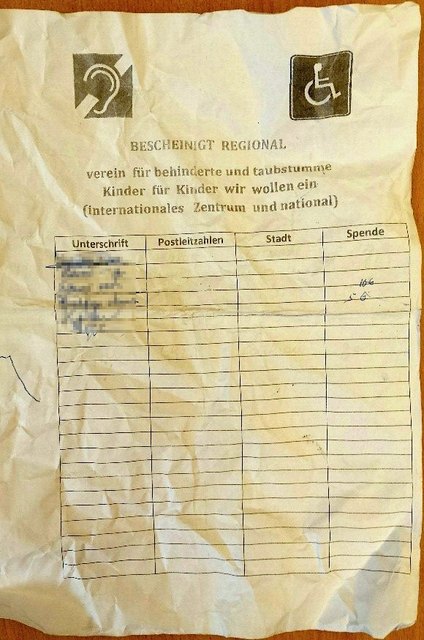 BESCHEINIGT REGIONAL
verein für behinderte und taubstumme
Kinder für Kinder wir wollen ein
(internationales Zentrum und national)
Unterschrift Postleitzahlen Stadt Spende
10€
5 €